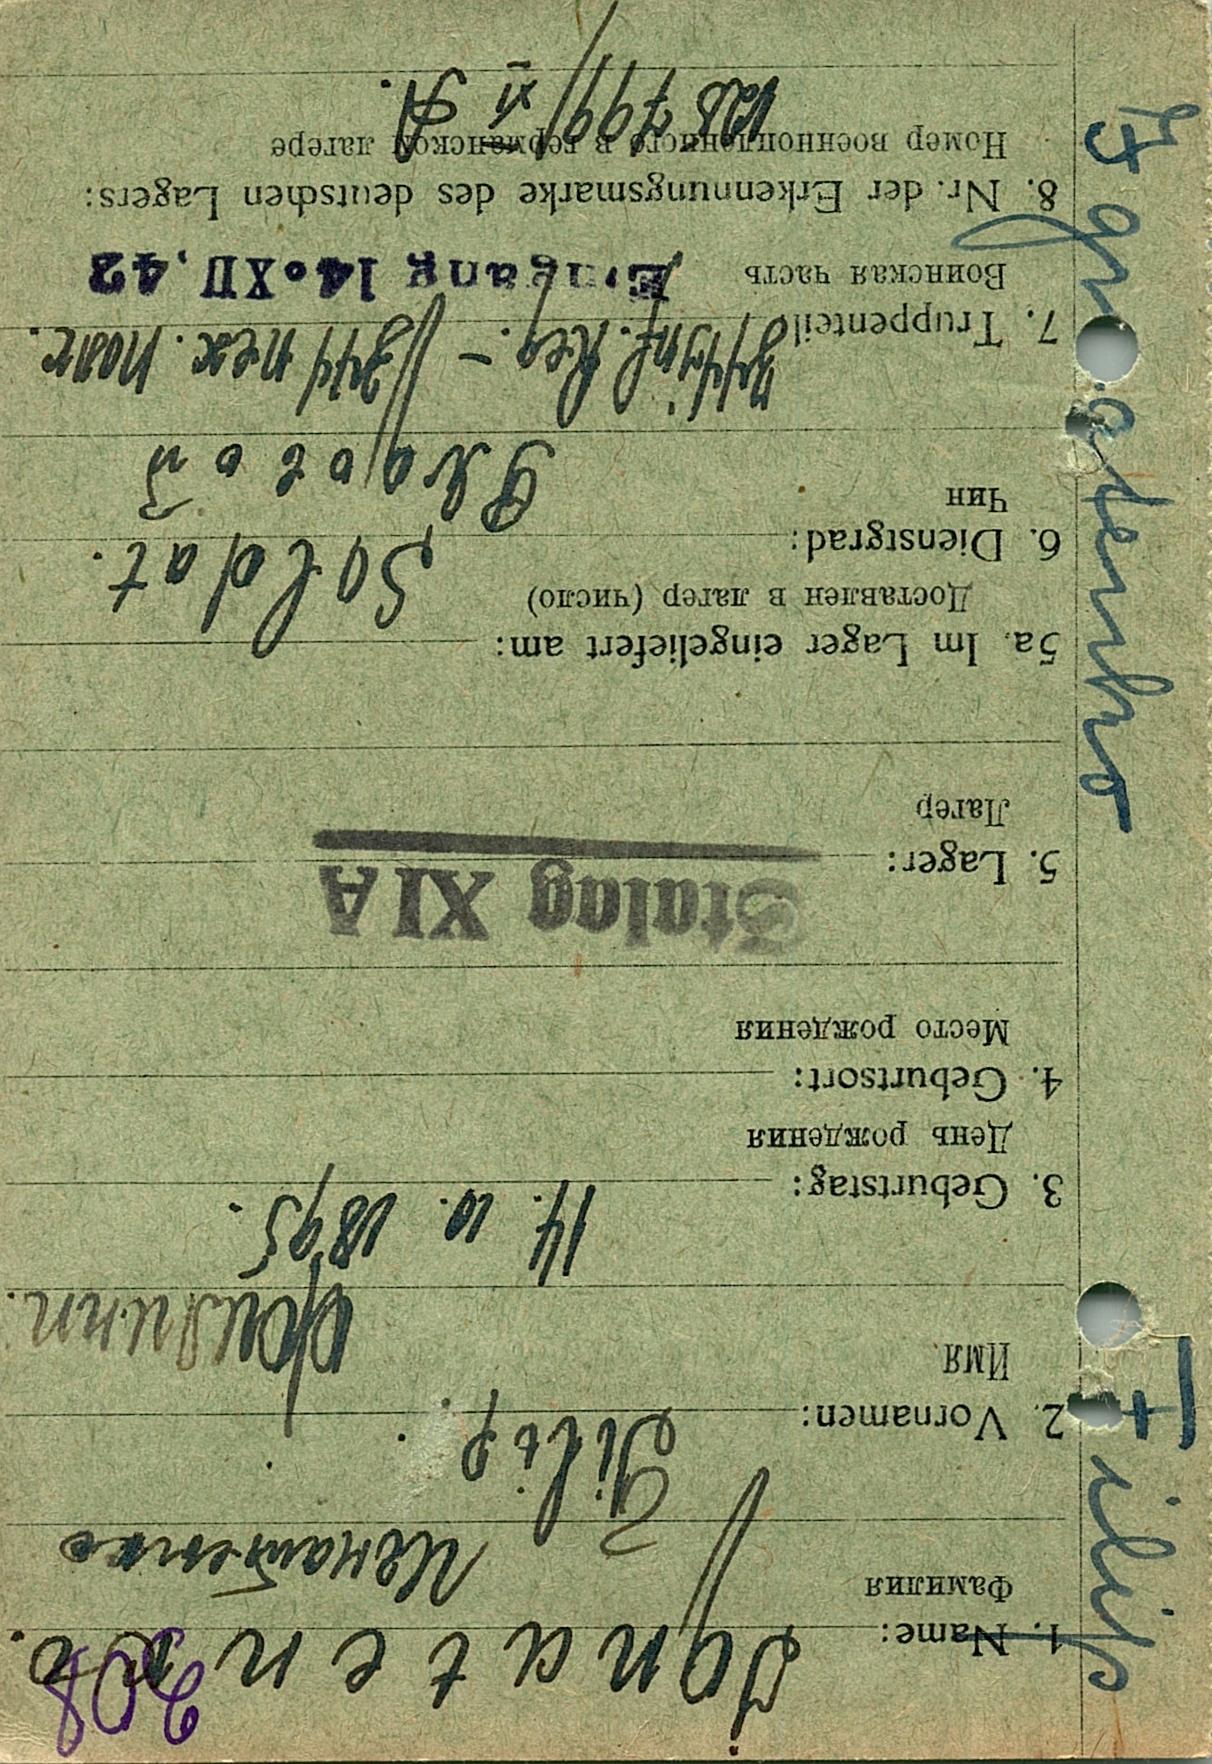 308
1. Name: Ignatenko.
Фамилия Игнатенко
2. Vornamen: Filip.
Имя Филипп.
3. Geburtstag: 14. 10. 1895.
День рождения
4. Geburtsort:
Место рождения
Stalag XIA
5. Lager:
Лагер
5a. Im Lager eingeliefert am:
Доставлен в лагер (число)
6. Dienstgrad: Soldat.
Чин Рядовой
7. Truppenteil 244 Inf. Reg. - 244 пех. полк.
Воинская часть Eingang 14. XII. 42
8. Nr. der Erkennungsmarke des deutschen Lagers:
Номер военнопленного в германской лагере
128799/ XI A.
Filip
Ignatenko